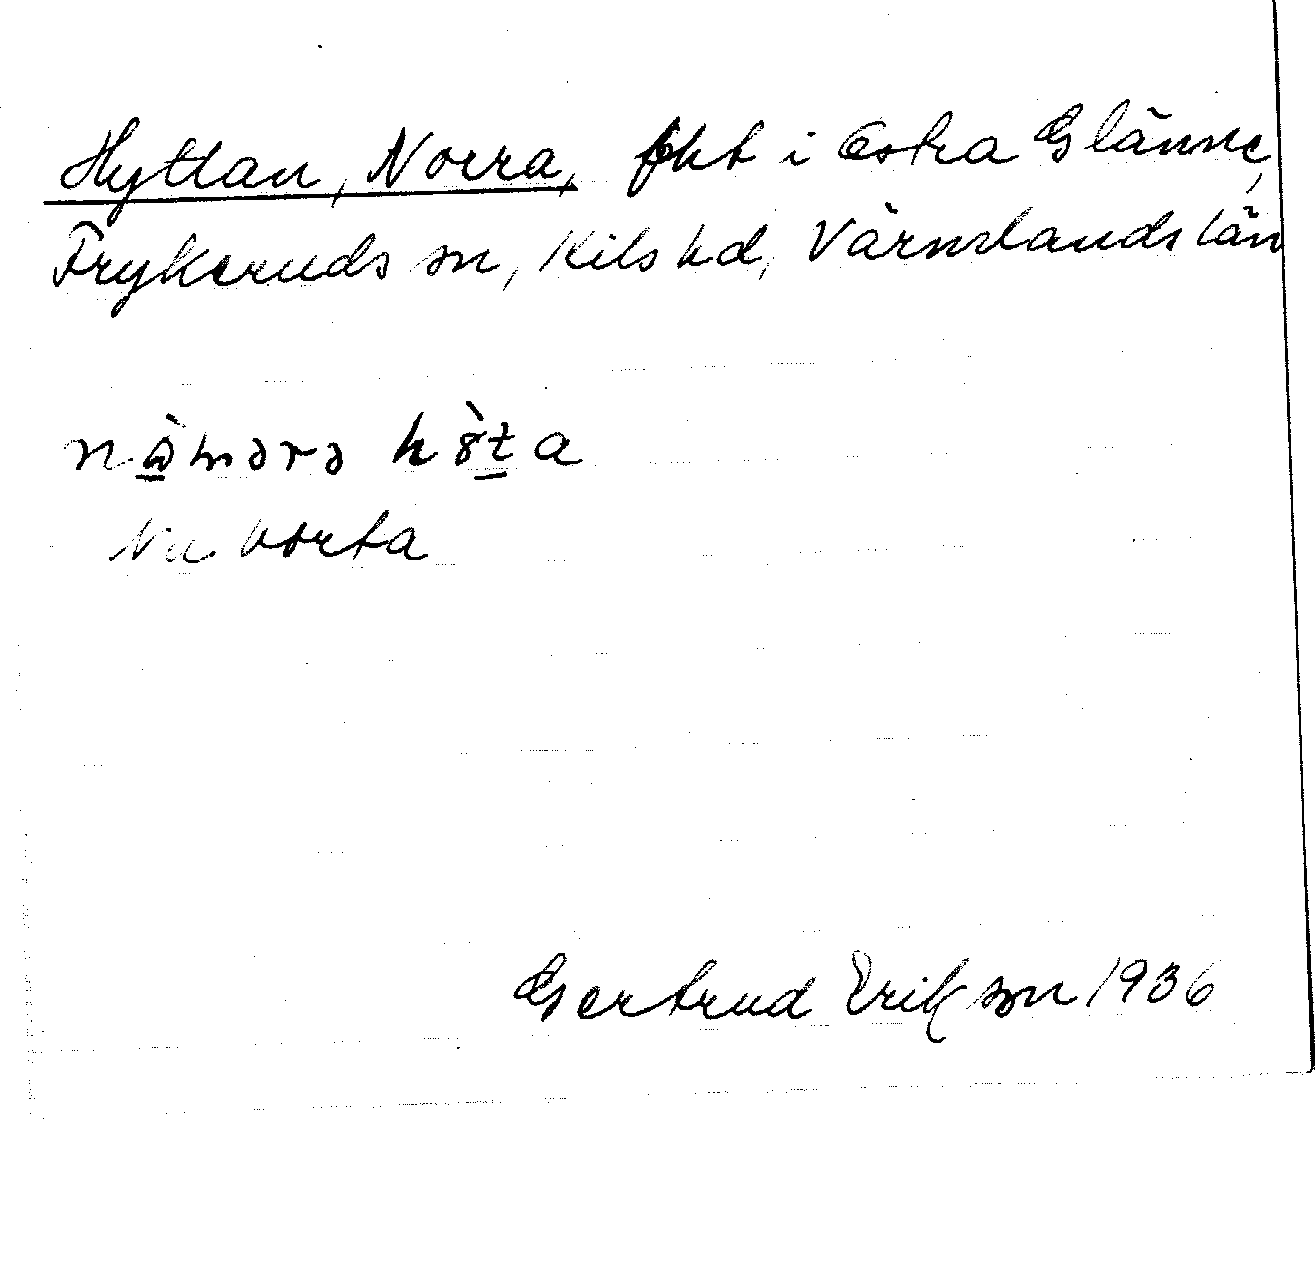 Hyttan, Norra, fht i Östra Glänne,
Frykeruds sn, Kils hd, Värmlands län
Nu borta
Gertrud Erikson 1936